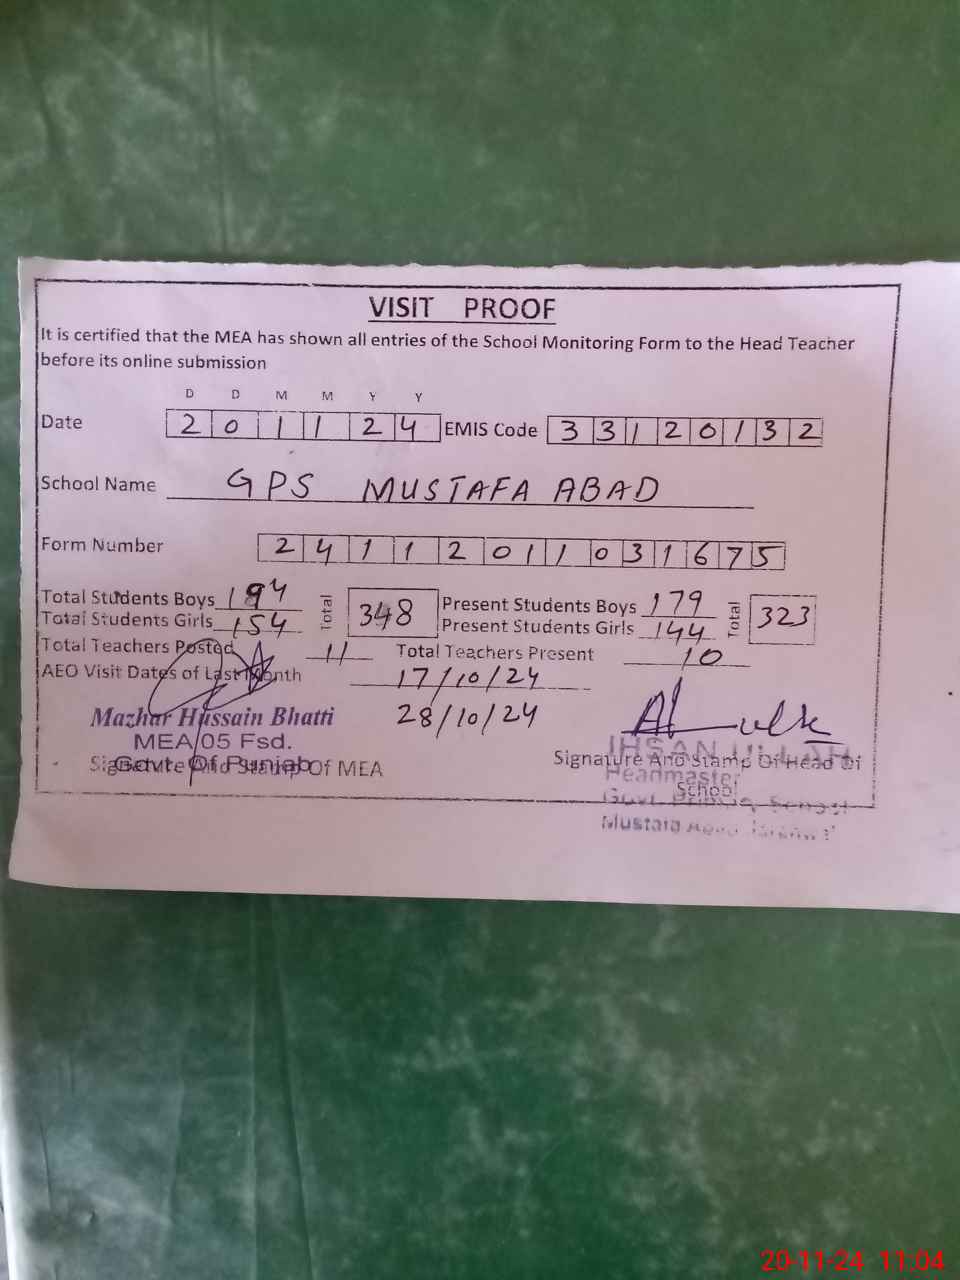 VISIT PROOF
It is certified that the MEA has shown all entries of the School Monitoring Form to the Head Teacher
before its online submission
D D M M Y Y
Date 2 0 1 1 2 4 EMIS Code 3 3 1 2 0 1 3 2
School Name GPS MUSTAFA ABAD
Form Number 2 4 1 1 2 0 1 1 0 3 1 6 7 5
Total Students Boys 194 Total 348 Present Students Boys 179 Total 323
Total Students Girls 154 Present Students Girls 144
Total Teachers Posted 11 Total Teachers Present 10
AEO Visit Dates of Last Month 17/10/24
28/10/24
Mazhar Hussain Bhatti
MEA 05 Fsd.
Govt. Of Punjab
Signature And Stamp Of MEA
IHSAN ULLAH
Signature And Stamp Of Head Of
School
Headmaster
Govt. Primary School
Mustafa Abad
20-11-24 11:04